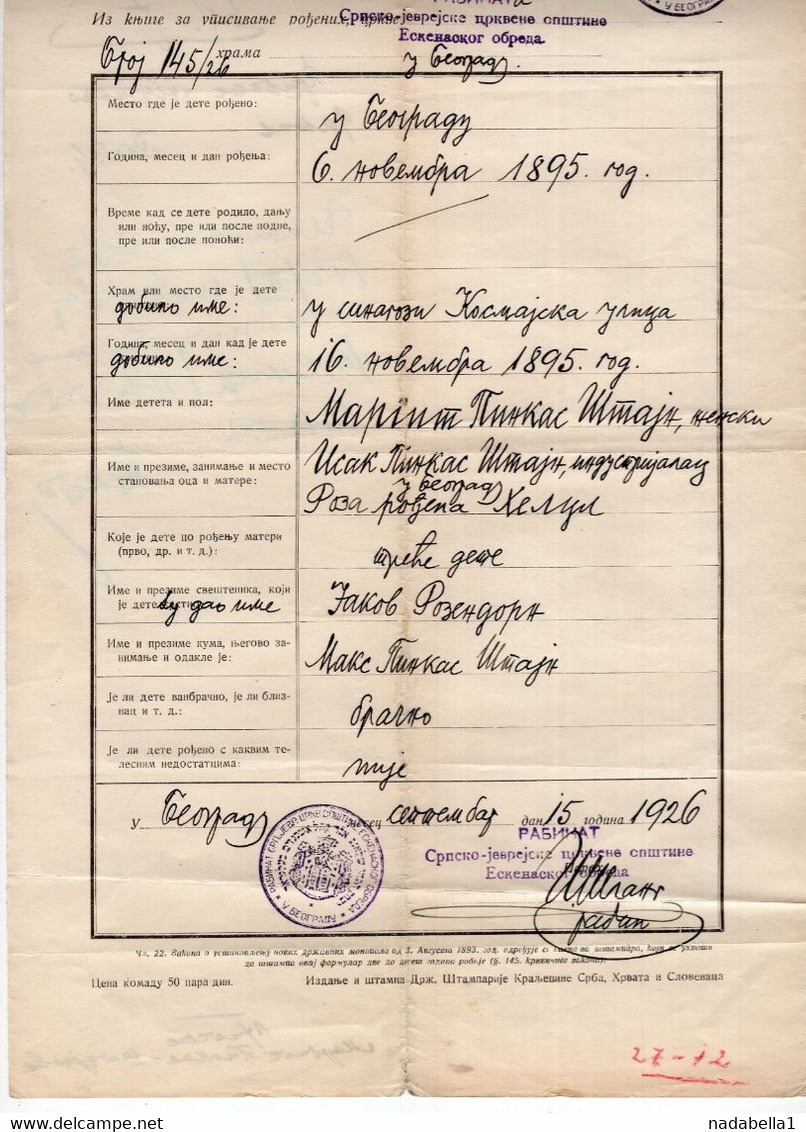 У БЕОГРАДУ
Из књиге за уписивање рођених, цркве
Српско-јеврејске црквене општине
Ескенаског обреда.
Број 145/26 храма у Београду.
Место где је дете рођено: у Београду
Година, месец и дан рођења: 6. новембра 1895. год.
Време кад се дете родило, дању
или ноћу, пре или после подне,
пре или после поноћи:
Храм или место где је дете
добило име: у синагози Космајска улица
Година, месец и дан кад је дете
добило име: 16. новембра 1895. год.
Име детета и пол: Маргит Пинкас Штајн, женски
Име и презиме, занимање и место
становања оца и матере: Исак Пинкас Штајн, индустријалац
у Београду
Роза рођена
Које је дете по рођењу матери
(прво, др. и т. д.): треће дете
Име и презиме свештеника, који
је дете му дао име Јаков Розендорн
Име и презиме кума, његово за-
нимање и одакле је: Макс Пинкас Штајн
Је ли дете ванбрачно, је ли близ-
нац и т. д.: брачно
Је ли дете рођено с каквим те-
лесним недостатцима: није
У Београду месец септембар дан 15 година 1926
РАБИНАТ
Српско-јеврејске црквене општине
Ескенаског обреда
рабин
РАБИНАТ СРП. ЈЕВР. ЦРКВ. ОПШТИНЕ ЕСКЕНАСКОГ ОБРЕДА
У БЕОГРАДУ
Чл. 22. Закона о установљењу нових државних монопола од 3. Августа 1893. год. одређује се казна за штампара, који се ухвати
да штампа овај формулар две до десет година робије (§. 145. кривичног закона).
Цена комаду 50 пара дин. Издање и штампа Држ. Штампарије Краљевине Срба, Хрвата и Словенаца
27-12
nadabella1